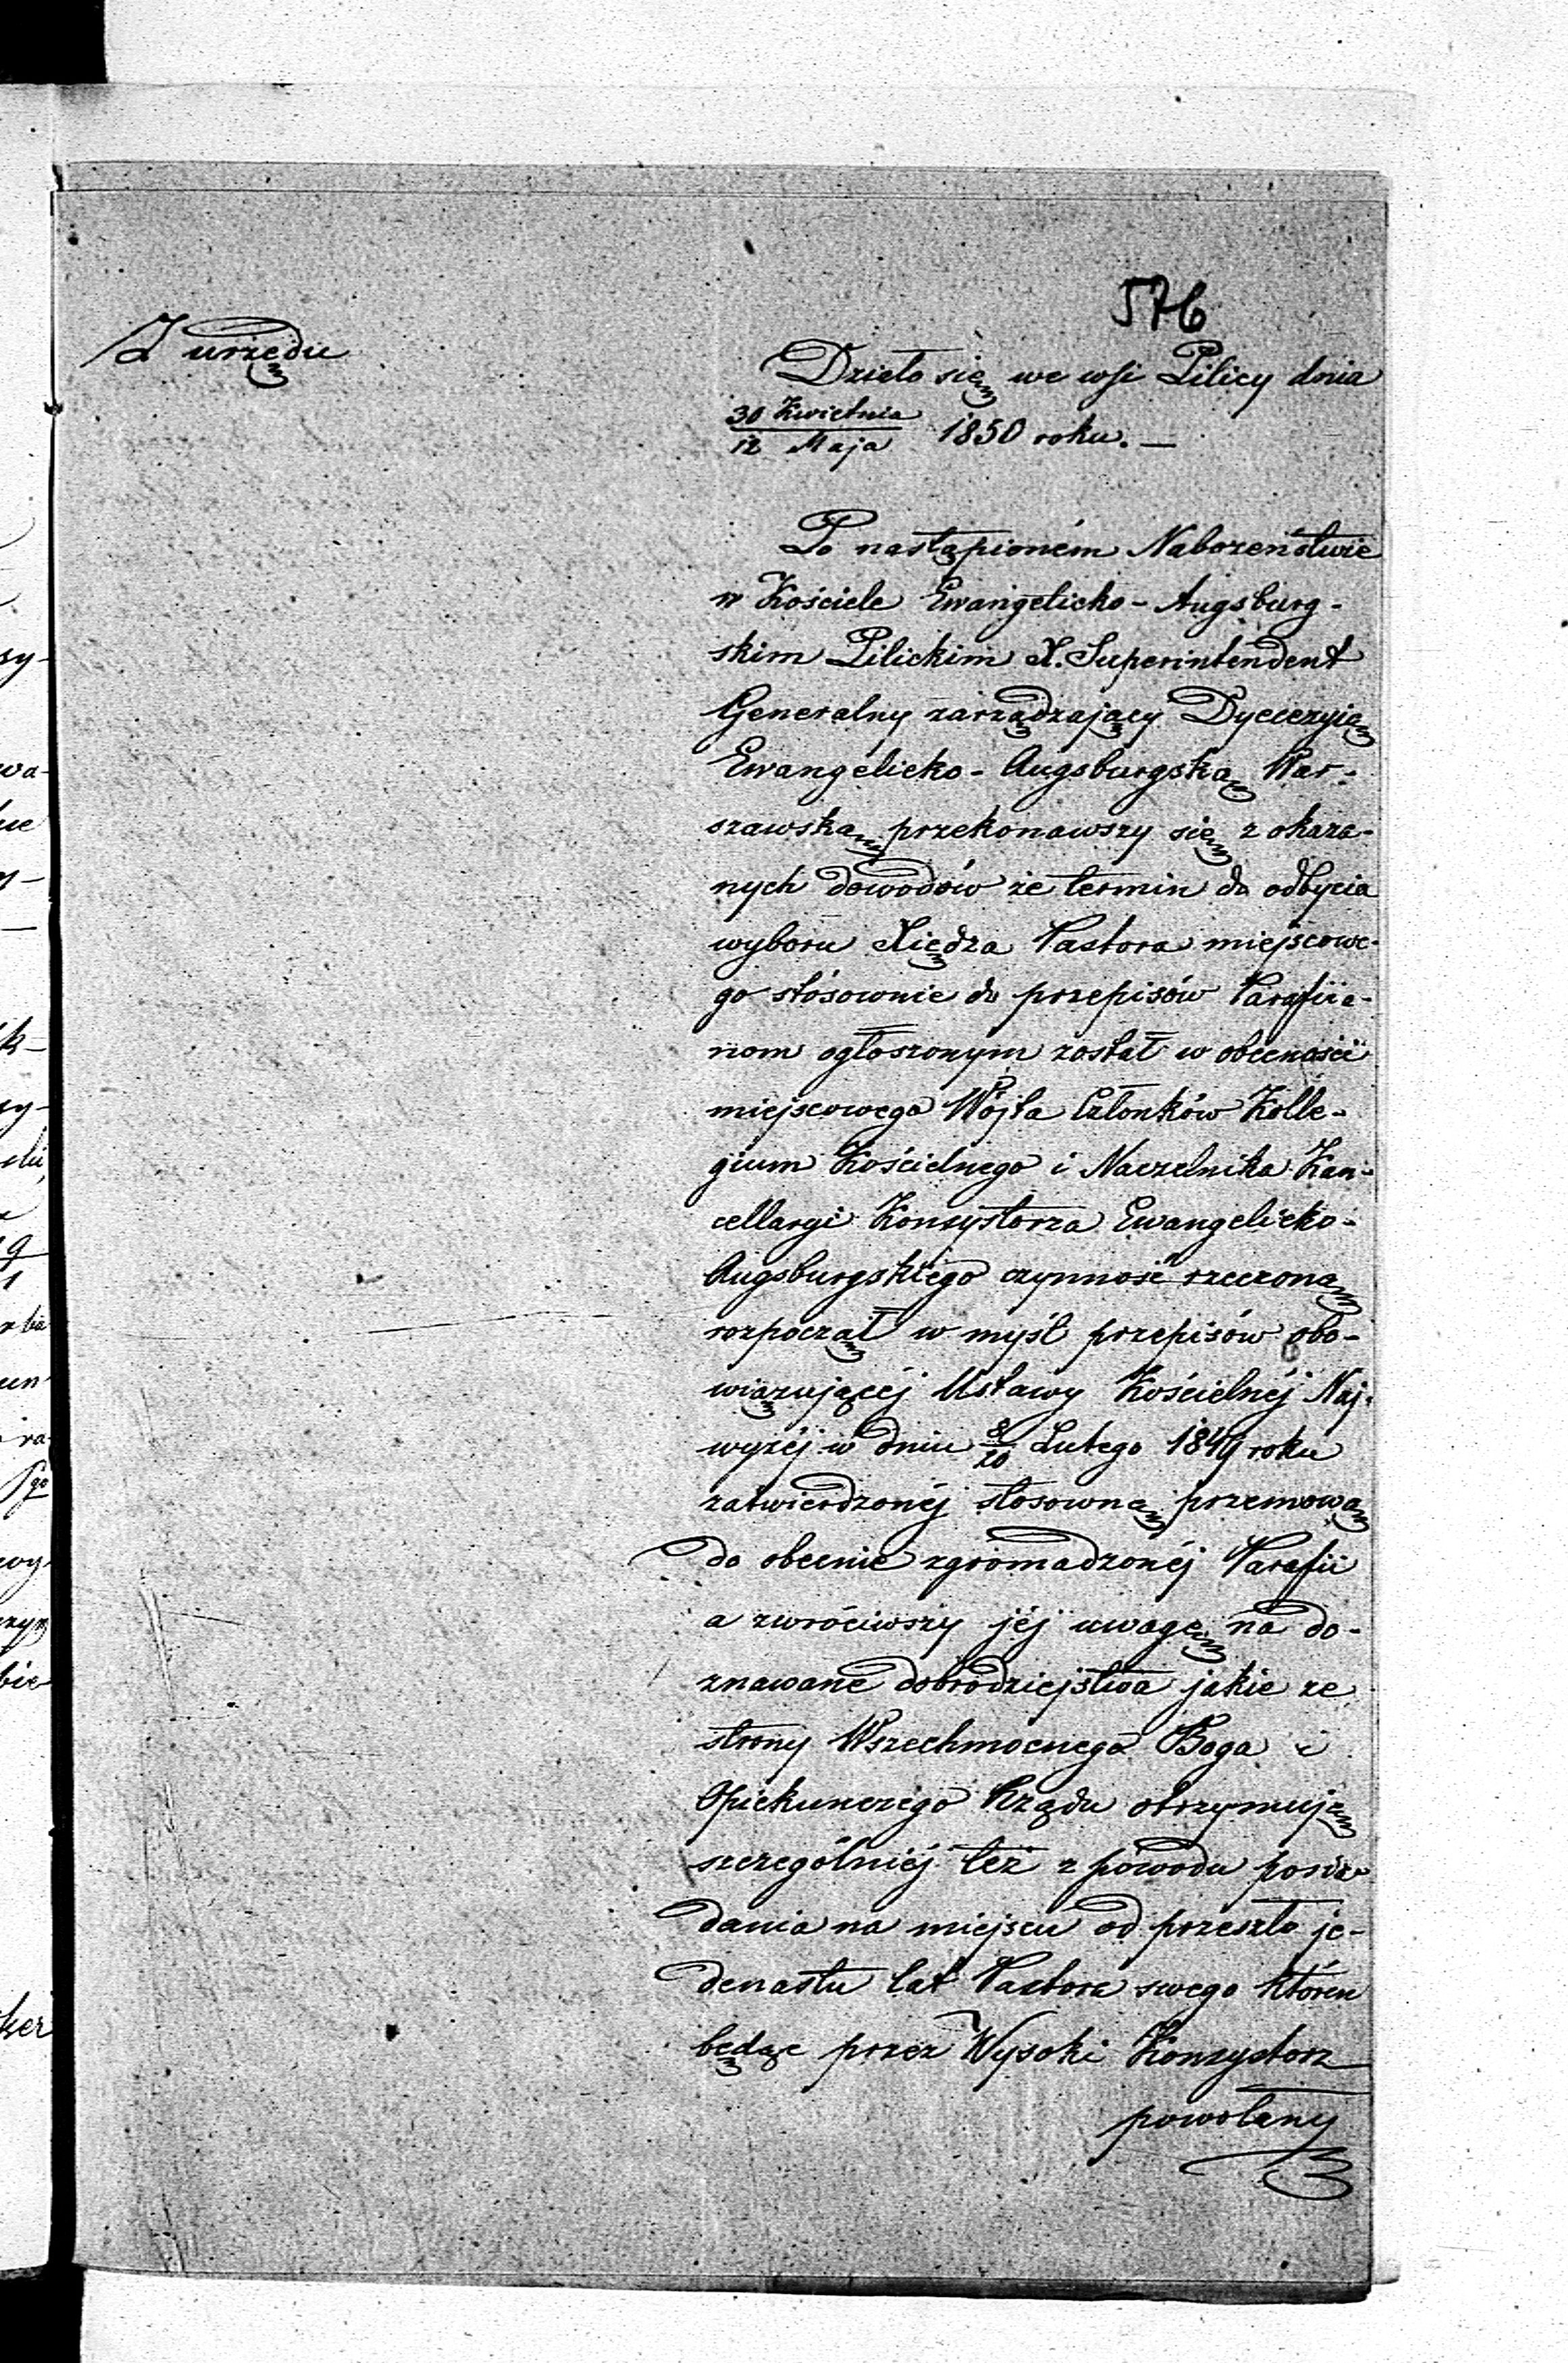 576
Z urzędu
Działo się we wsi Pilicy dnia
30 Kwietnia
12 Maja 1850 roku. —
Po nastąpioném Nabożeństwie
w Kościele Ewangelicko-Augsburg-
skim Pilickim X. Superintendent
Generalny zarządzający Dyecezyią
Ewangelicko-Augsburgską War-
szawską przekonawszy się z okaza-
nych dowodów że termin do odbycia
wyboru Xiędza Pastora miejscowe-
go stósownie do przepisów Parafiia-
nom ogłoszonym został w obecności
miejscowego Wójta Członków Kolle-
gium Kościelnego i Naczelnika Kan-
cellaryi Konsystorza Ewangelicko-
Augsburgskiego czynność rzeczoną
rozpoczął w myśl przepisów obo-
wiązującéj Ustawy Kościelnéj Naj-
wyżéj w dniu 8/20 Lutego 1849 roku
zatwierdzonéj stosowną przemową
do obecnie zgromadzonéj Parafii
a zwróciwszy jéj uwagę na do-
znawane dobrodziejstwa jakie ze
strony Wszechmocnego Boga i
Opiekunczego Rządu otrzymują
szczególniéj też z powodu posia-
dania na miejscu od przeszło je-
denastu lat Pastora swego którен
będąc przez Wysoki Konsystorz
powołany
sy-
wa-
ue
k-
sy-
ra-
wy-
bie-
ker